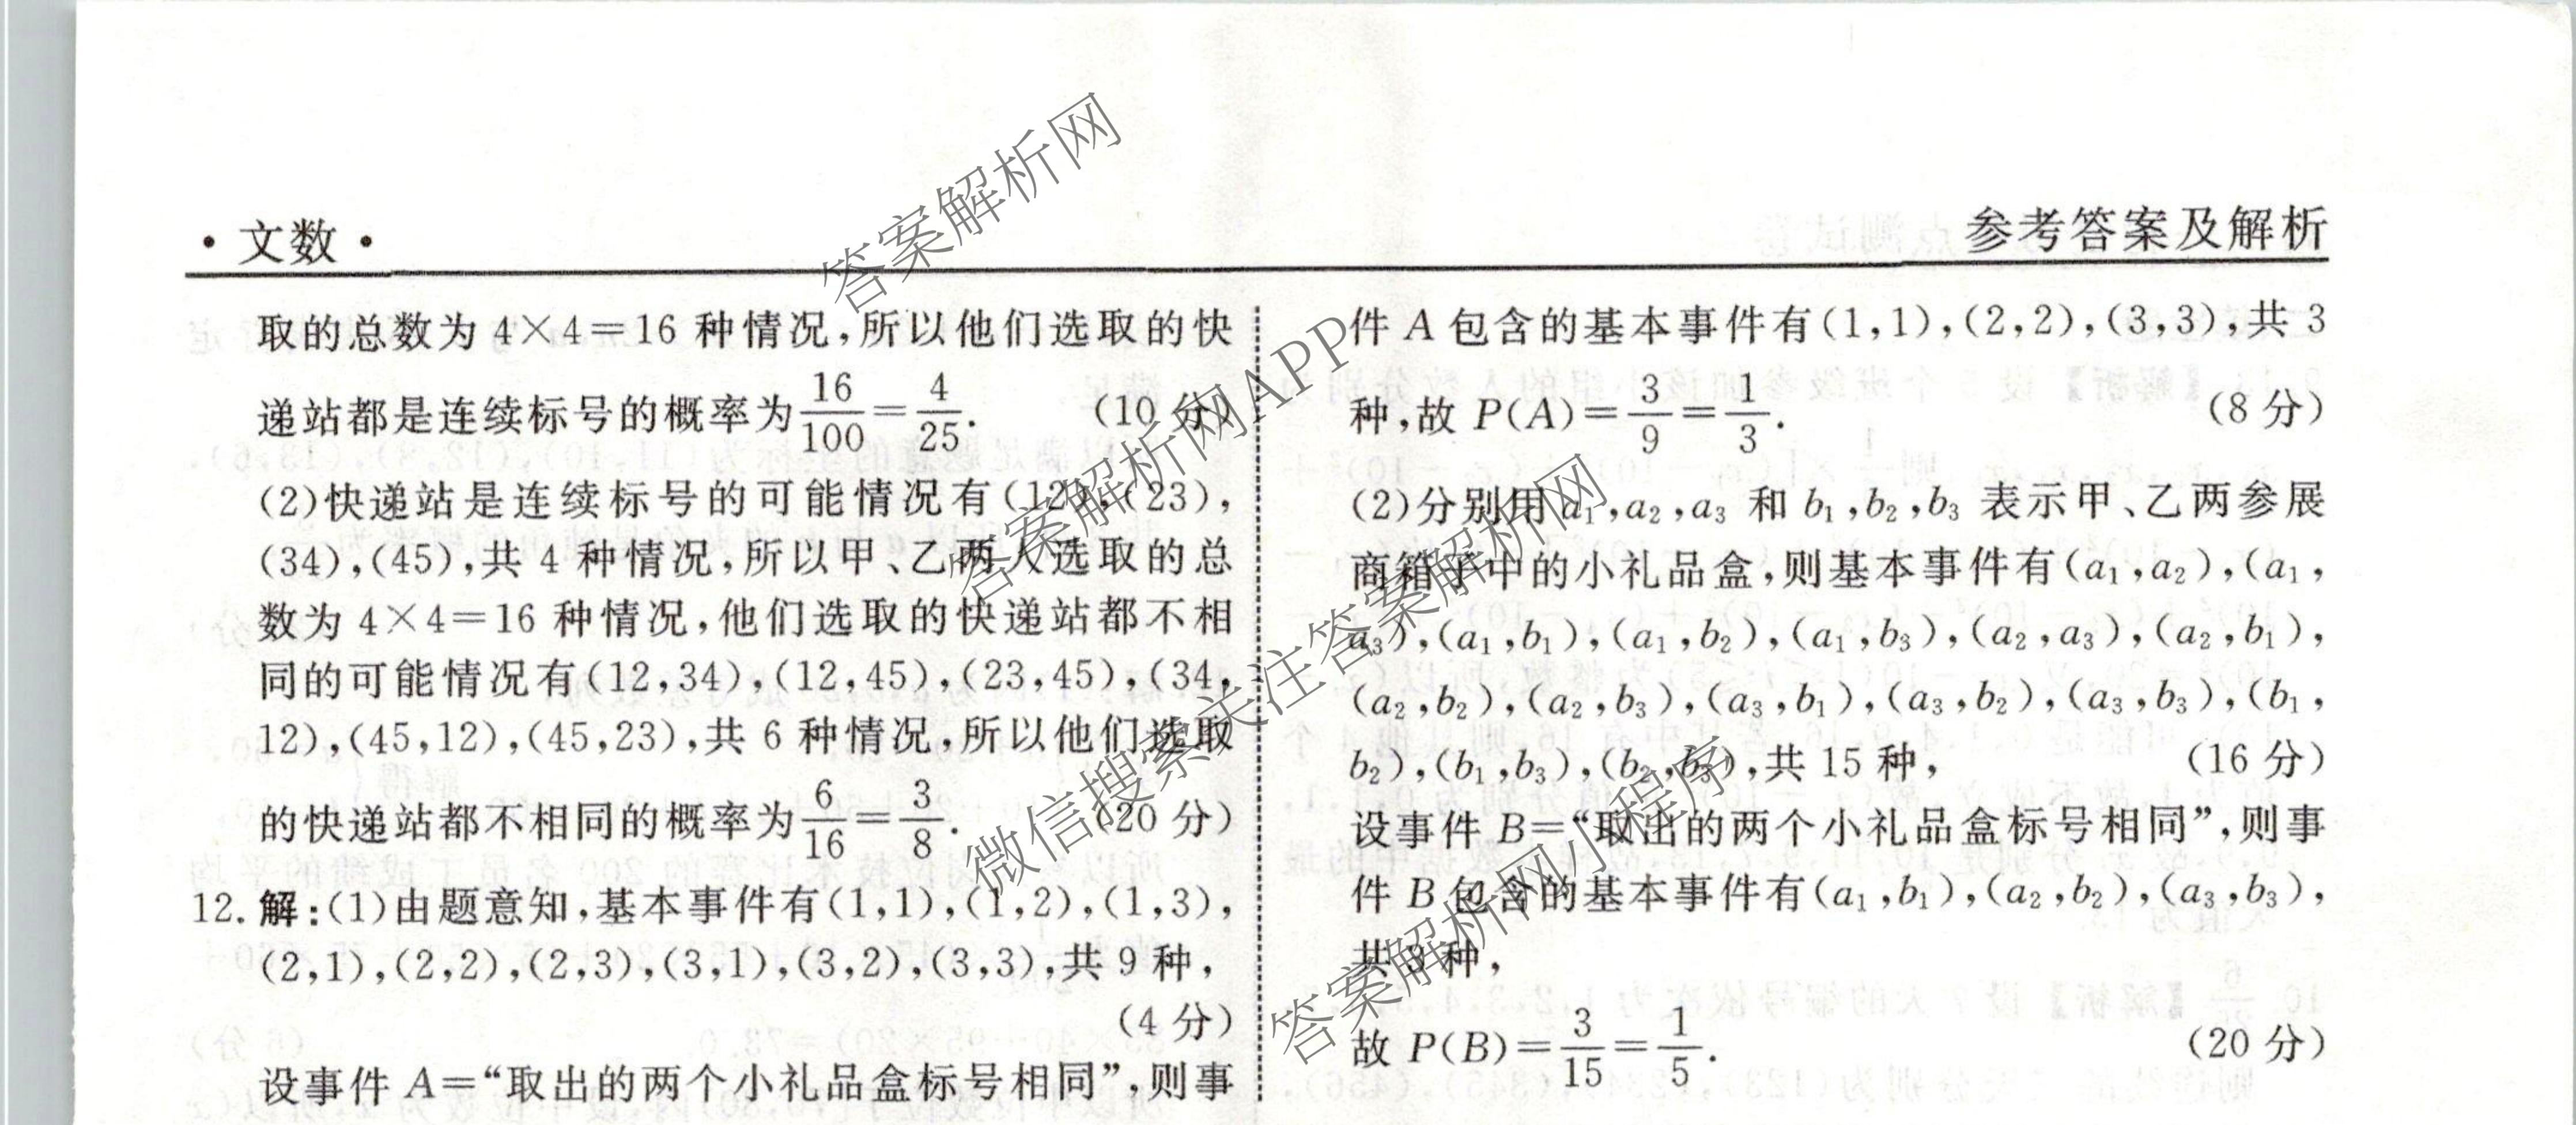 ·文数·
参考答案及解析
取的总数为 4×4=16 种情况,所以他们选取的快
递站都是连续标号的概率为16/100=4/25. (10 分)
(2)快递站是连续标号的可能情况有(12),(23),
(34),(45),共 4 种情况,所以甲、乙两人选取的总
数为 4×4=16 种情况,他们选取的快递站都不相
同的可能情况有(12,34),(12,45),(23,45),(34,
12),(45,12),(45,23),共 6 种情况,所以他们选取
的快递站都不相同的概率为6/16=3/8. (20 分)
12. 解:(1)由题意知,基本事件有(1,1),(1,2),(1,3),
(2,1),(2,2),(2,3),(3,1),(3,2),(3,3),共 9 种,
(4 分)
设事件 A=“取出的两个小礼品盒标号相同”,则事
件 A 包含的基本事件有(1,1),(2,2),(3,3),共 3
种,故 P(A)=3/9=1/3. (8 分)
(2)分别用 a₁,a₂,a₃ 和 b₁,b₂,b₃ 表示甲、乙两参展
商箱子中的小礼品盒,则基本事件有(a₁,a₂),(a₁,
a₃),(a₁,b₁),(a₁,b₂),(a₁,b₃),(a₂,a₃),(a₂,b₁),
(a₂,b₂),(a₂,b₃),(a₃,b₁),(a₃,b₂),(a₃,b₃),(b₁,
b₂),(b₁,b₃),(b₂,b₃),共 15 种, (16 分)
设事件 B=“取出的两个小礼品盒标号相同”,则事
件 B 包含的基本事件有(a₁,b₁),(a₂,b₂),(a₃,b₃),
共 3 种,
故 P(B)=3/15=1/5. (20 分)
答案解析网
答案解析网APP
微信搜索关注答案解析网
答案解析网小程序